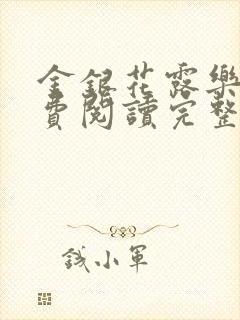 金銀花露樂
費閱讀完整
錢小軍